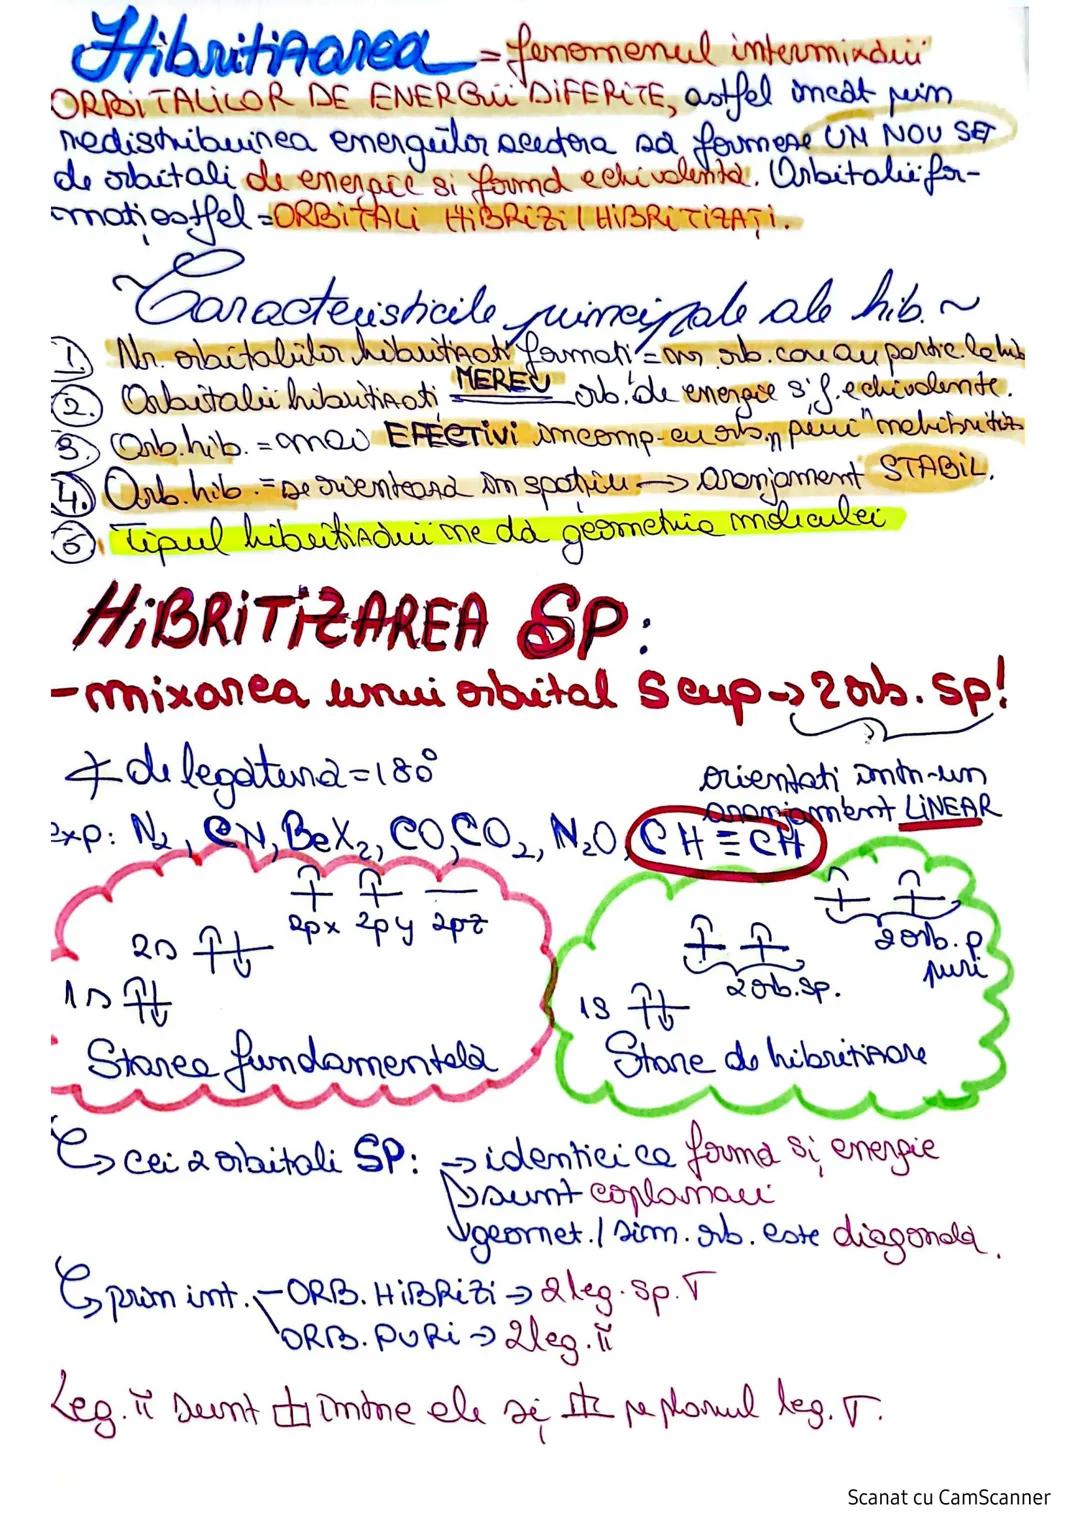 Hibritizarea = fenomenul intermixării
ORBITALILOR DE ENERGII DIFERITE, astfel încât prin
redistribuirea energiilor acestora să formeze UN NOU SET
de orbitali de energie si formă echivalentă. Orbitalii for-
mați astfel = ORBITALI HIBRIZI / HIBRITIZAȚI.
~ Caracteristicile principale ale hib. ~
1. Nr. orbitalilor hibritizati formati = nr. orb. care au partic. la hib
2. Orbitalii hibritizati MEREU orb. de energie și f. echivalente.
3. Orb. hib. = mai EFECTIVI în comp. cu orb. "puri" nehibritiz
4. Orb. hib. = se orientează în spațiu → aranjament STABIL.
5. Tipul hibritizării ne dă geometria moleculei
HIBRITIZAREA SP:
- mixarea unui orbital S cu p → 2 orb. sp!
∡ de legătură = 180°
orientati într-un
aranjament LINEAR
exp: N₂, CN, BeX₂, CO, CO₂, N₂O, CH ≡ CH
2px 2py 2pz
2s
1s
Starea fundamentală
2 orb. p
puri
2 orb. sp.
1s
Stare de hibritizare
↳ cei 2 orbitali SP: → identici ca formă și energie
→ sunt coplanari
→ geomet. / sim. orb. este diagonală.
↳ prin int. - ORB. HIBRIZI → 2 leg. sp. σ
ORB. PURI → 2 leg. π
Leg. π sunt ⊥ între ele și ⊥ pe planul leg. σ.
Scanat cu CamScanner